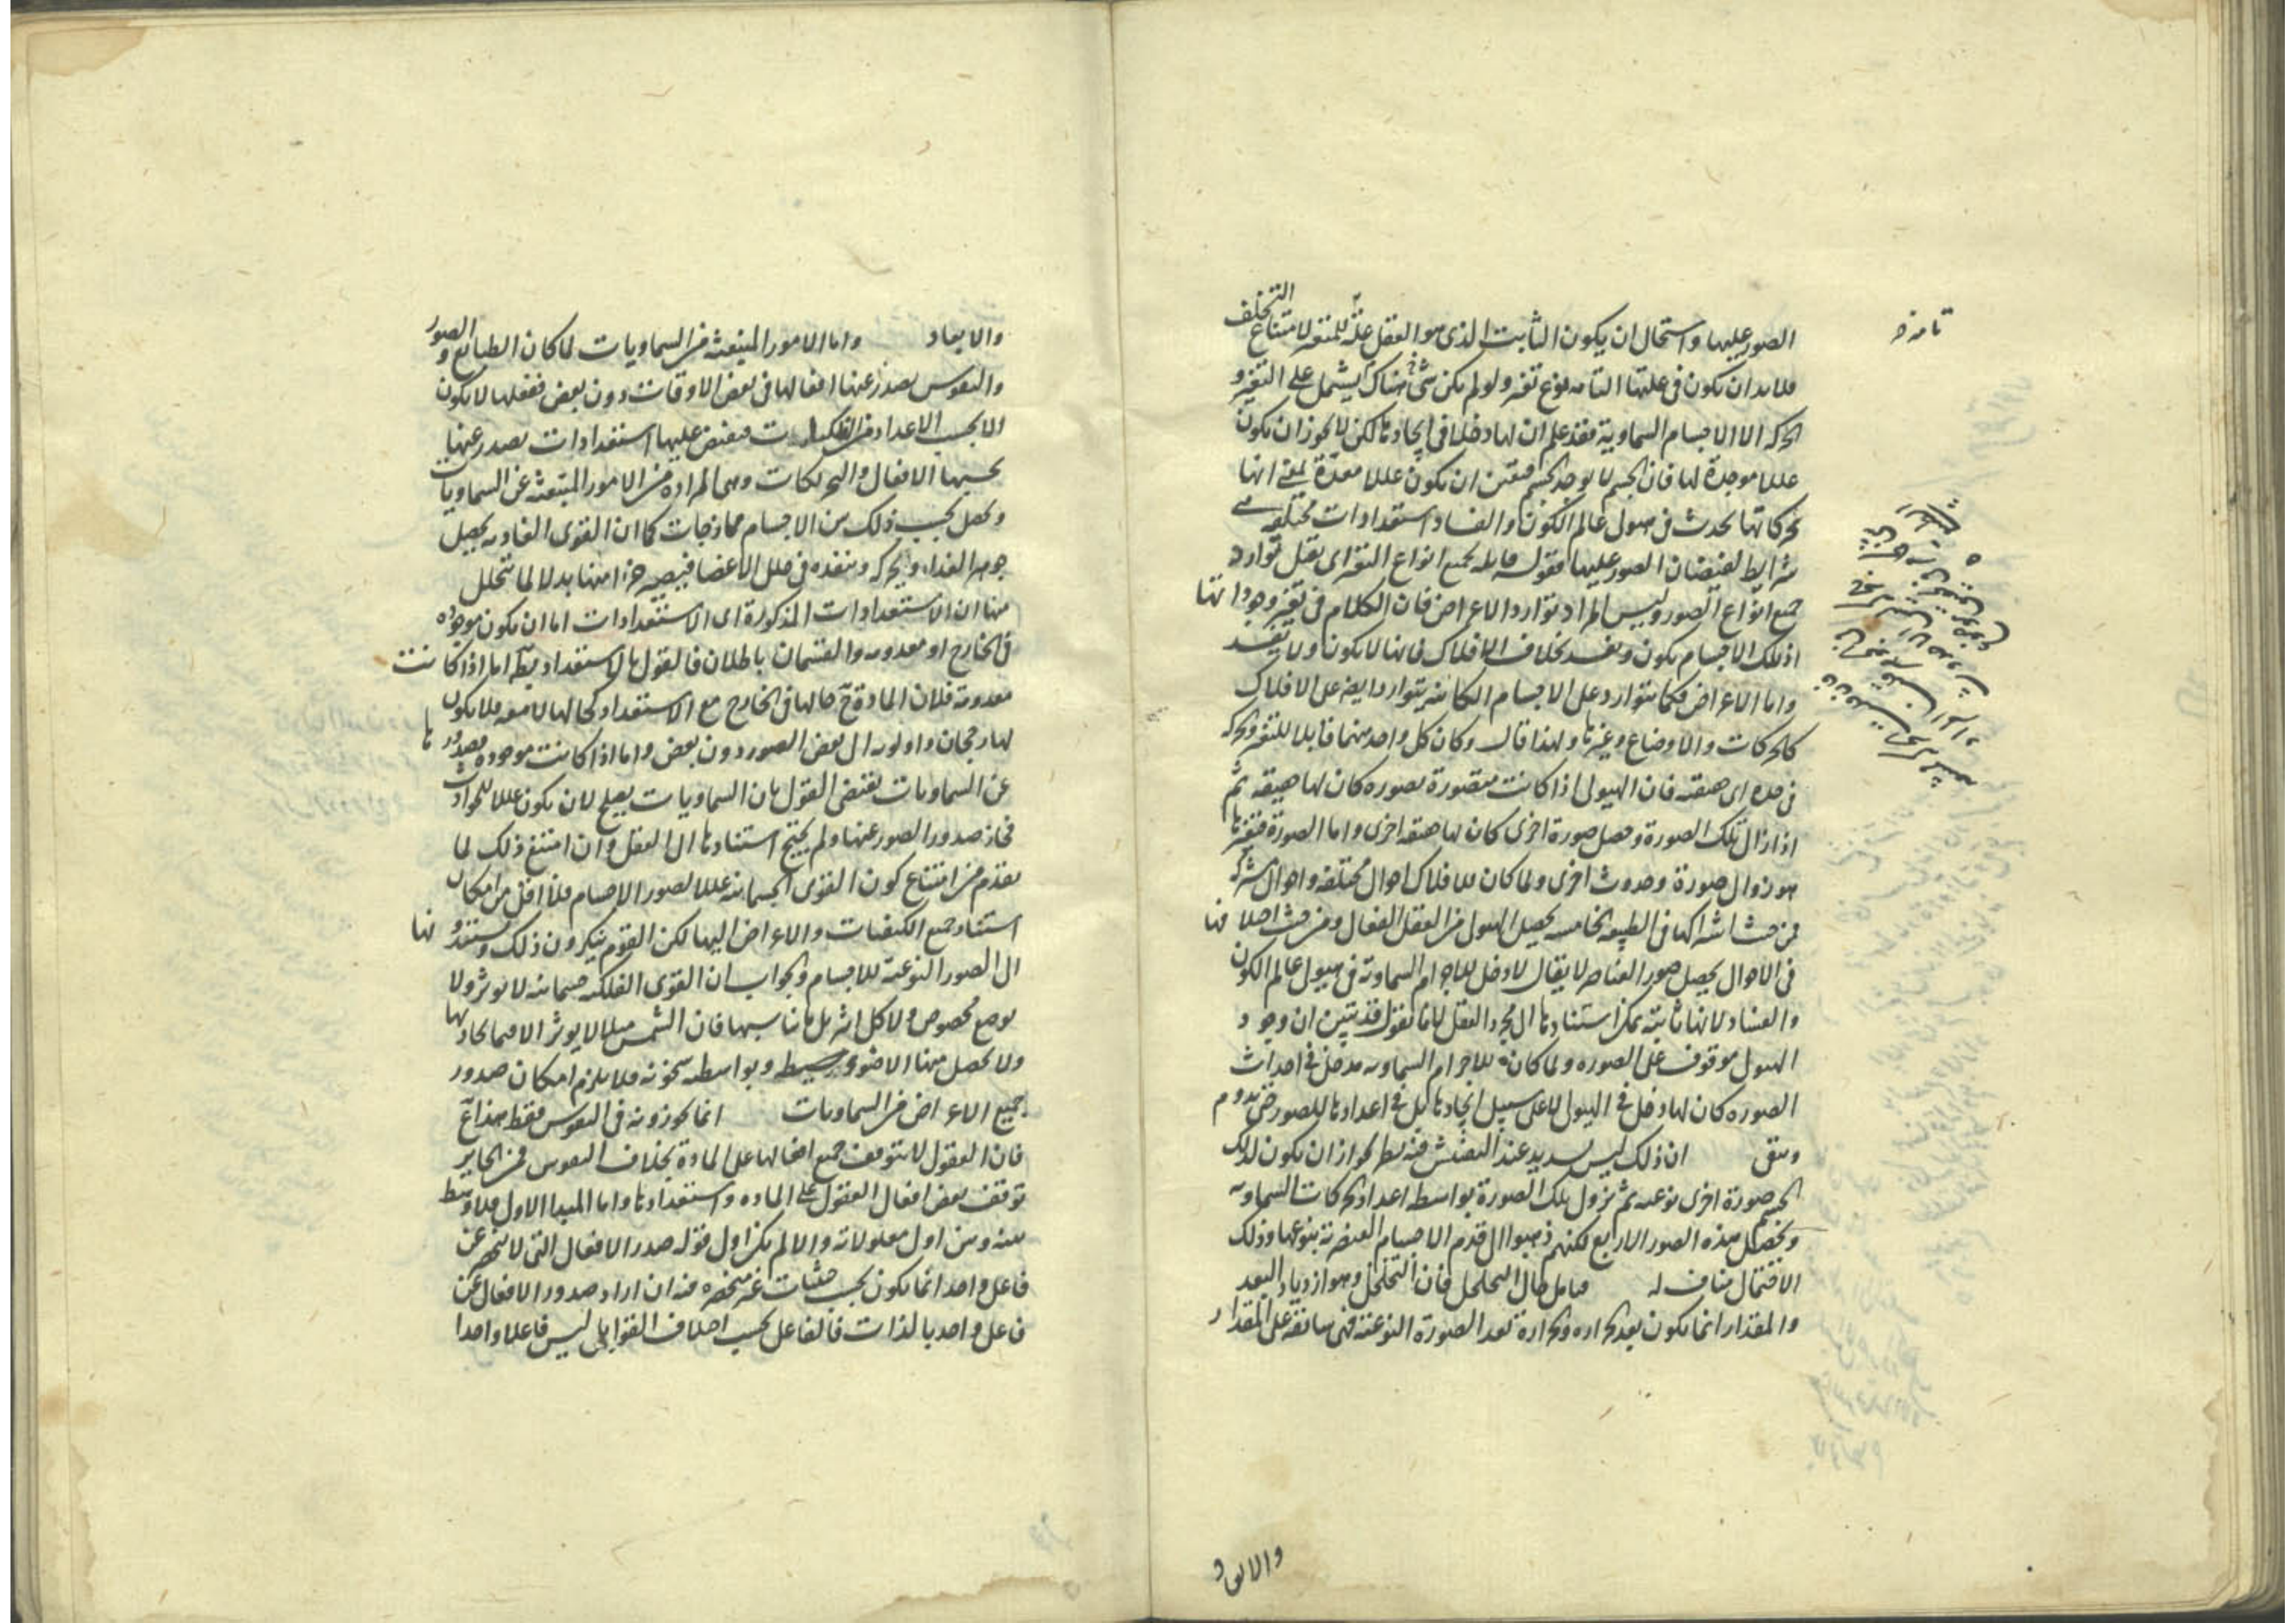 التخلف
الصور عليها واستحال ان يكون الثابت الذى هو العقل علّة للمتغير لامتناع
فلا بد ان يكون فى علتها التامه نوع تغير ولو لم يكن شئ هناك يشتمل على التغير و
الحركه الا الاجسام السماوية فقد علم ان لها دخلا فى ايجادها لكن لا يجوز ان يكون
عللا موجدة لها فان الجسم لا يوجد الجسم فتعين ان يكون عللا معدّة بمعنى انها
بحركاتها يحدث فى هيولى عالم الكون والفساد استعدادات مختلفه هى
شرايط لفيضان الصور عليها فقوله قابله لجميع انواع التغير اى يقبل توارد
جميع انواع الصور وليس المراد توارد الاعراض فان الكلام فى تغير وجوداتها
اذ تلك الاجسام يكون ويفسد بخلاف الافلاك فانها لا يكون ولا يفسد
واما الاعراض فكما يتوارد على الاجسام الكائنه يتوارد ايضا على الافلاك
كالحركات والاوضاع وغيرها ولهذا قال وكان كل واحد منهما قابلا للتغير والحركه
فى حده اى حقيقته فان الهيولى اذا كانت متصورة بصوره كان لها حقيقه ثم
اذا زال تلك الصورة وحصل صورة اخرى كان لها حقيقه اخرى واما الصورة فتغيرها
هو زوال صورة وحدوث اخرى ولما كان للافلاك احوال مختلفه واحوال مشتركه
فمن حيث اشتراكها فى الطبيعه الخامسه يحصل الهيولى من العقل الفعال ومن حيث اختلافها
فى الاحوال يحصل صور العناصر لا يقال لا دخل للاجرام السماوية فى هيولى عالم الكون
والفساد لانها ثابته يمكن استنادها الى مجرد العقل لانا نقول قد تبين ان وجود
الهيولى موقوف على الصوره ولما كانة للاجرام السماويه مدخل فى احداث
الصوره كان لها دخل فى الهيولى لا على سبيل ايجادها بل فى اعدادها للصور حتى يدوم
ويبقى ان ذلك ليس بسديد عند التفتيش فيه نظر لجواز ان يكون لذلك
الجسم صورة اخرى نوعيه ثم يزول تلك الصورة بواسطه اعداد الحركات السماويه
ويحصل هذه الصور الاربع لكنهم ذهبوا الى قدم الاجسام العنصرية بنوعها وذلك
الاحتمال مناف له فتامل حال التخلخل فان التخلخل وهو ازدياد البعد
والمقدار انما يكون بعد الحراره والحرارة بعد الصورة النوعيه فهى سابقه على المقدار
والابعاد
والابعاد واما الامور المنبعثه من السماويات لما كان الطبايع و الصور
والنفوس يصدر عنها افعالها فى بعض الاوقات دون بعض ففعلها لا يكون
الا بحسب الاعداد من الفلكيات فيفيض عليها استعدادات يصدر عنها
بحسبها الافعال والتحريكات وهى المراده من الامور المنبعثه عن السماويات
ويحصل بحسب ذلك بين الاجسام ممازجات كما ان القوى الغاذيه يحصل
جوهر الغذاء ويحركه وينفذه فى خلل الاعضا فيصير جزءا منها بدلا لما يتحلل
هنا ان الاستعدادات المذكورة اى الاستعدادات اما ان يكون موجوده
فى الخارج او معدومه والقسمان باطلان فالقول بالاستعداد بط اما اذا كانت
معدومة فلان المادة ح حالها فى الخارج مع الاستعداد كحالها لا معه فلا يكون
لها رجحان واولويه الى بعض الصور دون بعض واما اذا كانت موجوده فصدورها
عن السماويات يقتضى القول بان السماويات يصلح لان يكون عللا للحوادث
فجاز صدور الصور عنها ولم يحتج استنادها الى العقل وان امتنع ذلك لما
تقدم من امتناع كون القوى الجسمانيه عللا لصور الاجسام فلا اقل من امكان
استناد جميع الكيفيات والاعراض اليها لكن القوم ينكرون ذلك ويسندونها
الى الصور النوعية للاجسام والجواب ان القوى الفلكيه جسمانيه لا يوثر ولا
بوضع مخصوص ولا كل اثر بل ما يناسبها فان الشمس مثلا لا يوثر الا فيما يحاذيها
ولا يحصل منها الا ضوء وبواسطه سخونه فلا يلزم امكان صدور
جميع الاعراض من السماويات انما يجوزونه فى النفوس فقط هذا مع
فان العقول لا يتوقف جميع افعالها على المادة بخلاف النفوس فمن الجايز
توقف بعض افعال العقول على الماده واستعدادها واما المبدا الاول فلا توسط
بينه وبين اول معلولاته والا لم يكن اول قوله صدر الافعال التى لا تنحصر عن
فاعل واحد انما يكون بحسب حيثيات غير منحصره فيه ان اراد صدور الافعال عن
فاعل واحد بالذات فالفاعل بحسب اختلاف القوابل ليس فاعلا واحدا